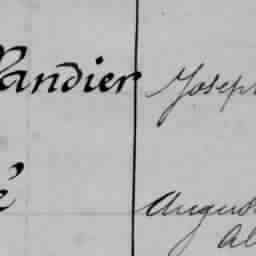 Pandier Joseph
é Auguste
Al